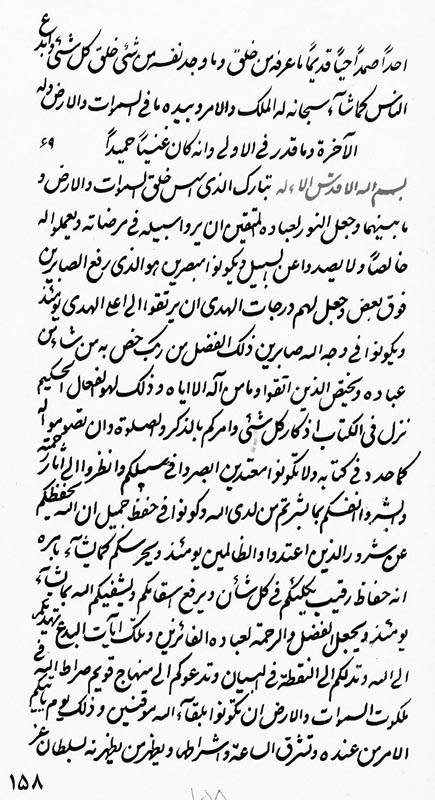 احداً صمداً حیاً قدیماً ما عرفه من خلق و ما وجد نفسه من شئ خلق کل شئ و ابدع
النفس کما شاء سبحانه له الملک والامر و بیده ما فی السموات والارض و له
الآخرة و ما قدر فی الاولی و انه کان غنیاً حمیداً ۶۹
بسم الله الاقدس الاء له تبارک الذی اسس خلق السموات والارض و
ما بینهما و جعل النور لعباده المتقین ان یردوا سبیله فی مرضاته و یعملوا له
خالصاً و لا یصدوا عن السبیل و یکونوا مبصرین هو الذی رفع الصابرین
فوق بعض و جعل لهم درجات الهدی ان یرتقوا الی اعلی الهدی یومئذ
و یکونوا فی وجه الله صابرین ذلک الفضل من ربک خص به من شاء من
عباده و یختص الذین اتقوا و ما من آله الا ایاه و ذلک لهو الفعال الحکیم
نزل فی الکتاب اذکار کل شئ و امرکم بالذکر والصلوة و ان تصوموا له
کما حدد فی کتابه و لا تکونوا معتدین ابصروا فی سبیلکم وانظروا الی آثار رحمته
و بشروا انفسکم بما بشرتم من لدی الله و کونوا فی حفظ جمیل ان الله یحفظکم
عن شرور الذین اعتدوا والظالمین یومئذ و یحرسکم کما یشاء بامره
انه حفاظ رقیب یکلیکم فی کل شأن و یرفع اسقامکم و یشفیکم الله بما یشاء
یومئذ و یجعل الفضل والرحمة لعباده الفائزین و تلک آیات البدع یهدیکم
الی الله و تدلکم الی النقطة فی البیان و تدعوکم الی منهاج قویم صراط الله فی
ملکوت السموات والارض ان تکونوا بلقاء الله موقنین و ذلک یوم یاتیکم
الامر من عنده و تشرق الساعة و اشراطها و یظهر من یظهره لسلطان عز
۱۵۸
۱۵۸